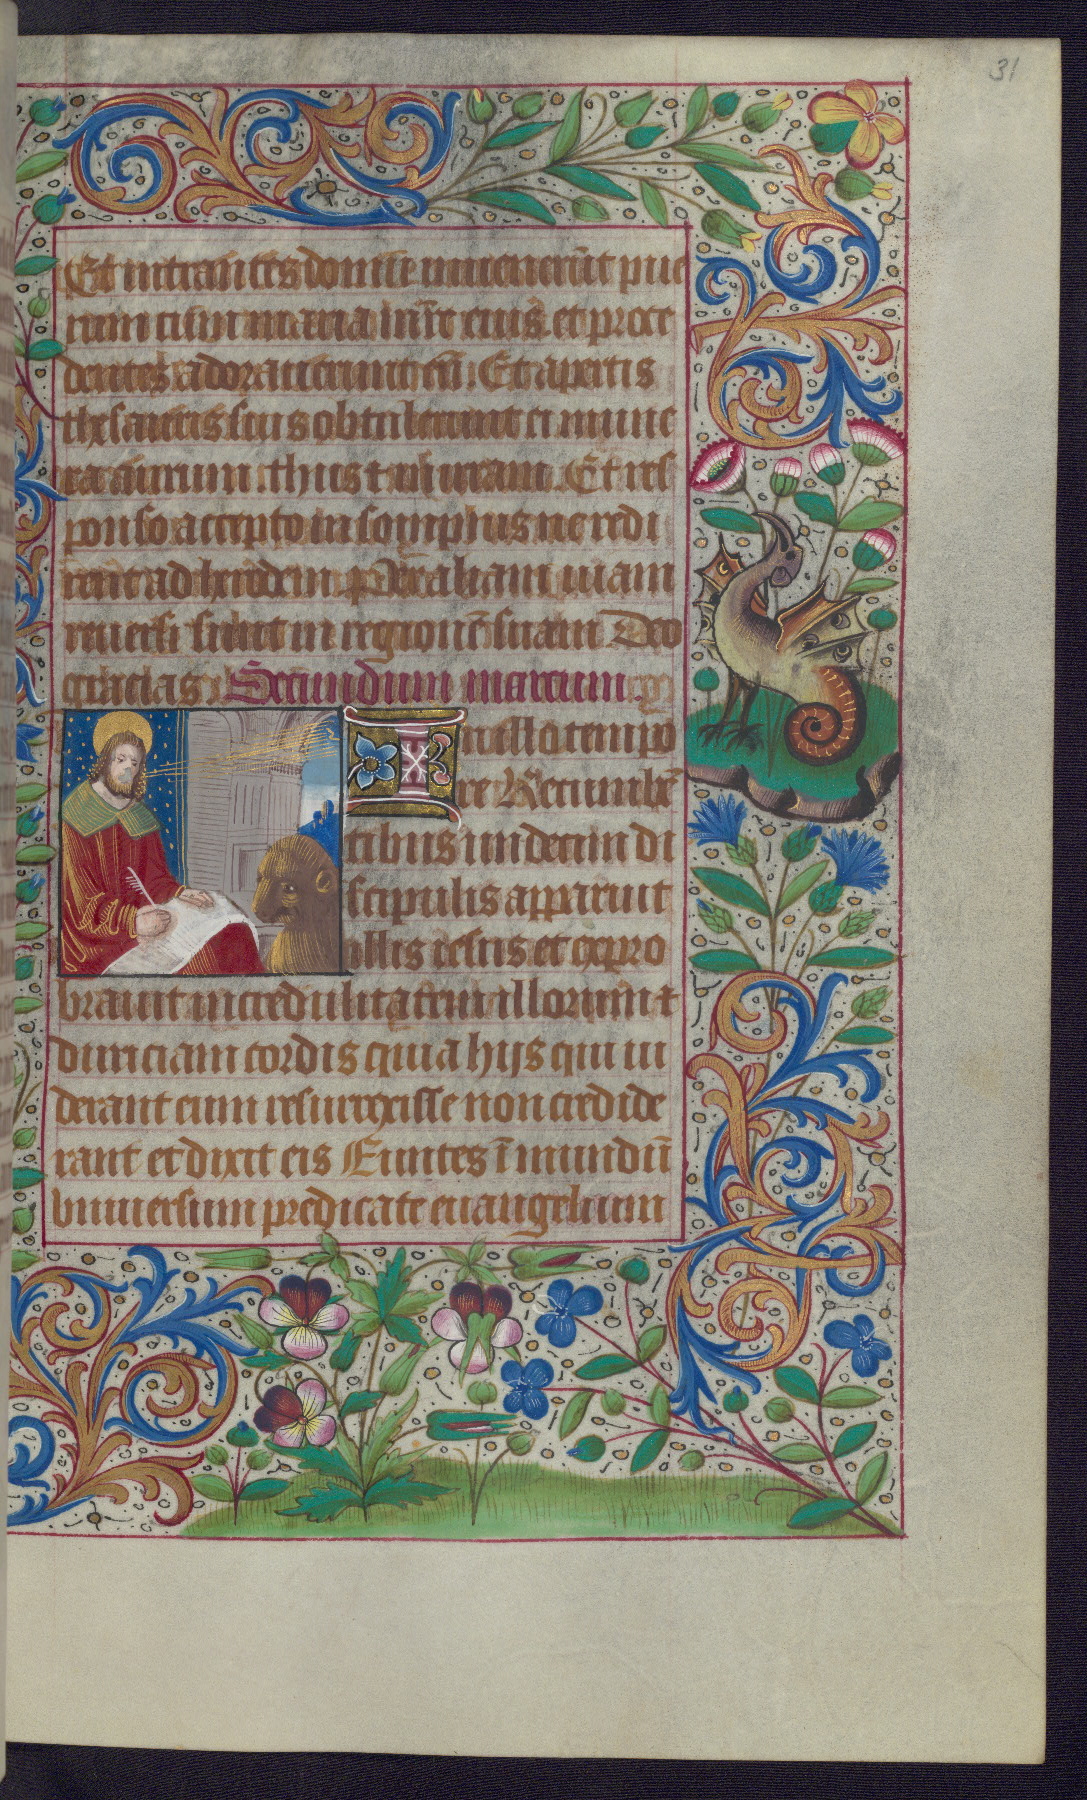 31
Et intrantes domũ inuenerũt pue
rum cum maria mr̃e eius. et proci
dentes adorauerunt eũ. Et apertis
thesauris suis obtulerunt ei mune
ra aurum. thus ⁊ mirram. Et res
ponso accepto in sompnis ne redi
rent ad herodem p̱ aliam uiam
reuersi sunt in regionẽ suam Deo
gracias Secundum marcum.
In illo tempo
re Recumbẽ
tibus undecim di
scipulis apparuit
illis iesus et expro
brauit incredulitatem illorum ⁊
duriciam cordis quia hijs qui ui
derant eum resurrexisse non credide
rant et dixit eis Euntes ĩ mundũ
vniuersum predicate euangelium